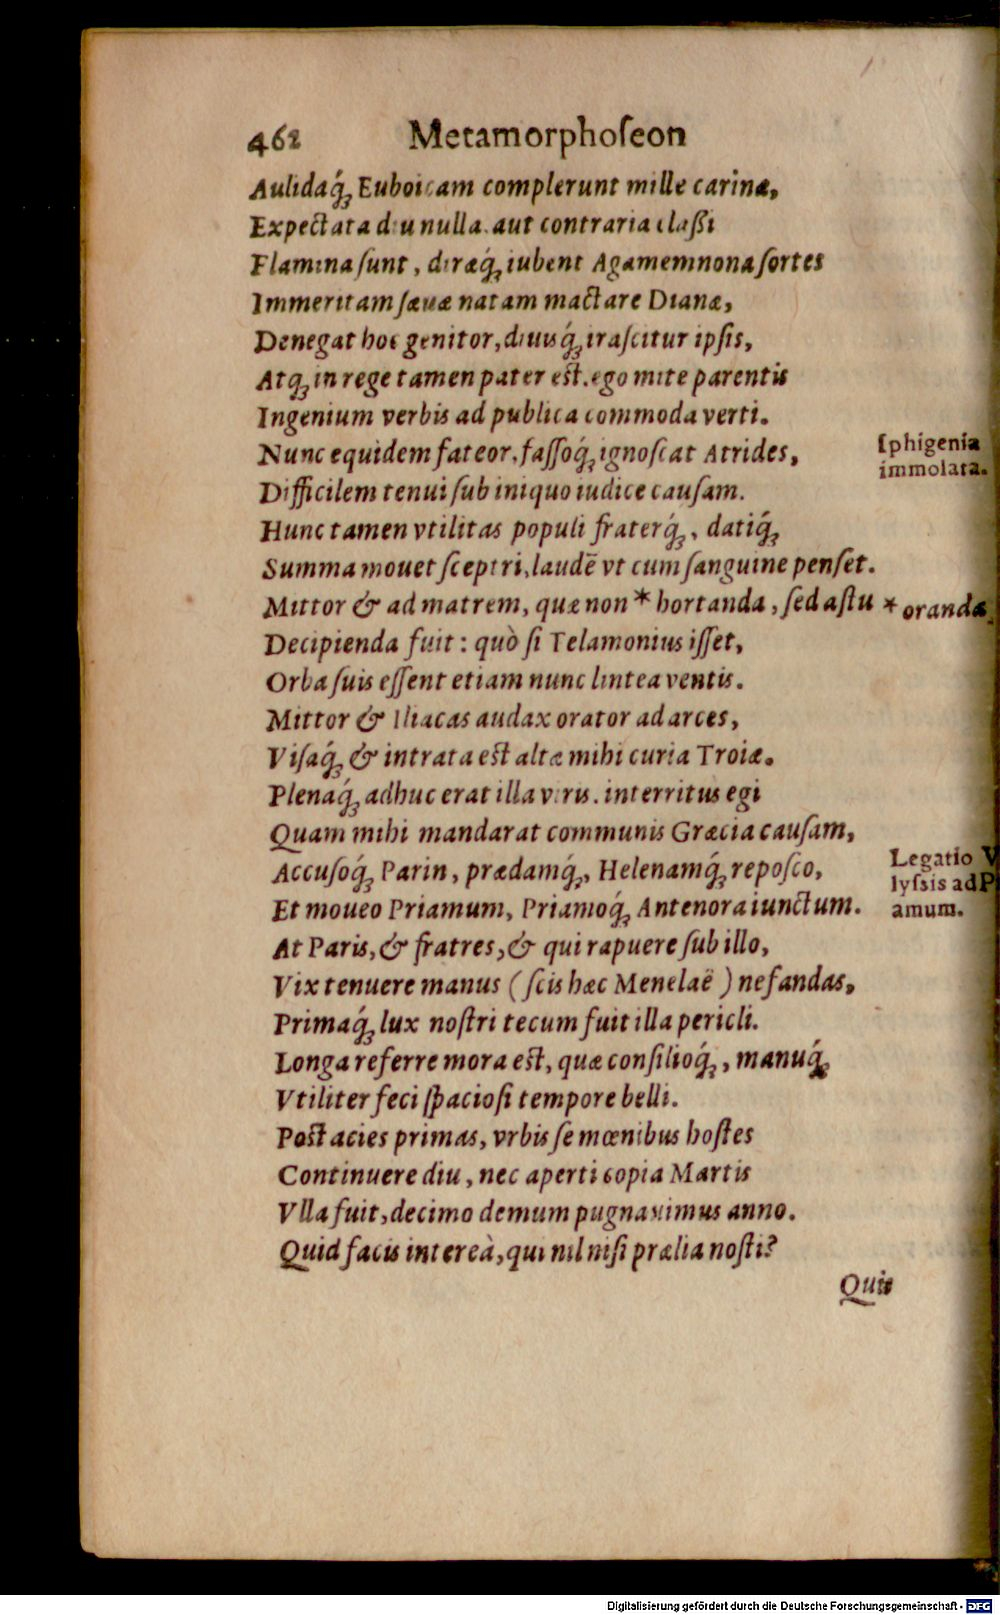 462 Metamorphoſeon
Aulidaq́ꝫ Euboicam complerunt mille carinæ,
Expectata diu nulla aut contraria claßi
Flamina ſunt, diræq́ꝫ iubent Agamemnona ſortes
Immeritam ſæuæ natam mactare Dianæ,
Denegat hoc genitor, diuisq́ꝫ iraſcitur ipſis,
Atqꝫ in rege tamen pater est. ego mite parentis
Ingenium verbis ad publica commoda verti.
Nunc equidem fateor, faſſoq́ꝫ ignoſcat Atrides,
Iphigenia
immolata.
Difficilem tenui ſub iniquo iudice cauſam.
Hunc tamen vtilitas populi fraterq́ꝫ, datiq́ꝫ
Summa mouet ſceptri, laudē vt cum ſanguine penſet.
Mittor & ad matrem, quæ non * hortanda, ſed aſtu
* oranda
Decipienda fuit: quò ſi Telamonius iſſet,
Orba ſuis eſſent etiam nunc lintea ventis.
Mittor & Iliacas audax orator ad arces,
Viſaq́ꝫ & intrata est altæ mihi curia Troiæ.
Plenaq́ꝫ adhuc erat illa viris. interritus egi
Quam mihi mandarat communis Græcia cauſam,
Accuſoq́ꝫ Parin, prædamq́ꝫ, Helenamq́ꝫ repoſco,
Et moueo Priamum, Priamoq́ꝫ Antenora iunctum.
Legatio V
lyſsis ad P
amum.
At Paris, & fratres, & qui rapuere ſub illo,
Vix tenuere manus (ſcis hæc Menelaë) nefandas,
Primaq́ꝫ lux noſtri tecum fuit illa pericli.
Longa referre mora est, quæ conſilioq́ꝫ, manuq́ꝫ
Vtiliter feci ſpacioſi tempore belli.
Post acies primas, vrbis ſe mœnibus hoſtes
Continuere diu, nec aperti copia Martis
Vlla fuit, decimo demum pugnauimus anno.
Quid facis intereà, qui nil niſi prælia noſti?
Quis
Digitalisierung gefördert durch die Deutsche Forschungsgemeinschaft - DFG